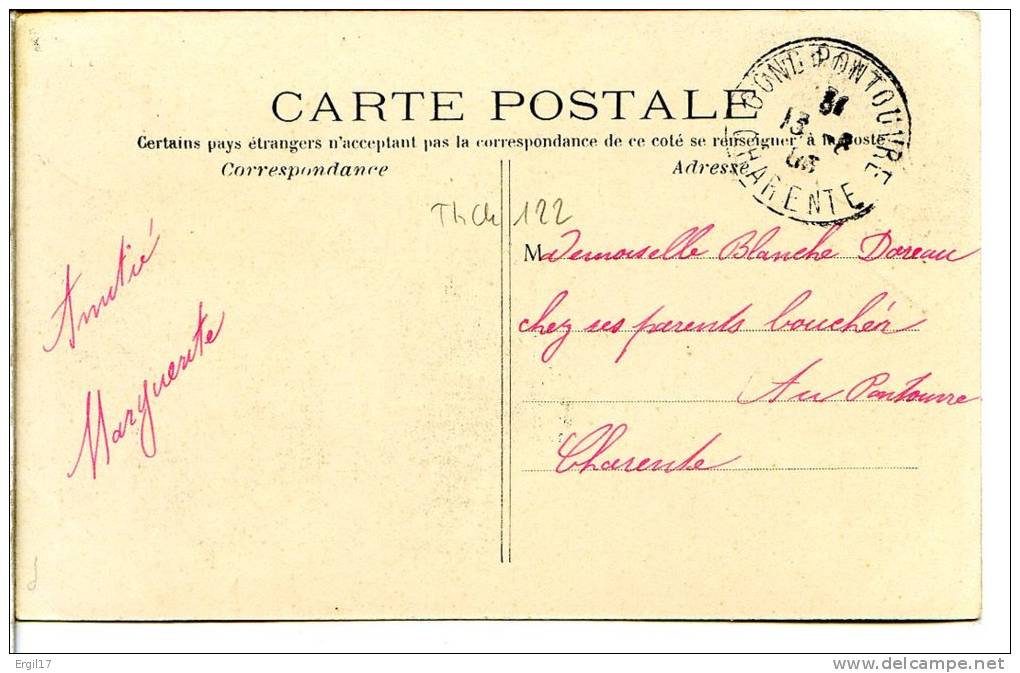 CARTE POSTALE
Certains pays étrangers n'acceptent pas la correspondance de ce coté se renseigner à la poste
Correspondance
Adresse
GOND PONTOUVRE
CHARENTE
122
Amitié
Marguerite
Mademoiselle Blanche Doreau
chez ses parents boucher
Au Pontouvre
Charente
Ergil17
www.delcampe.net